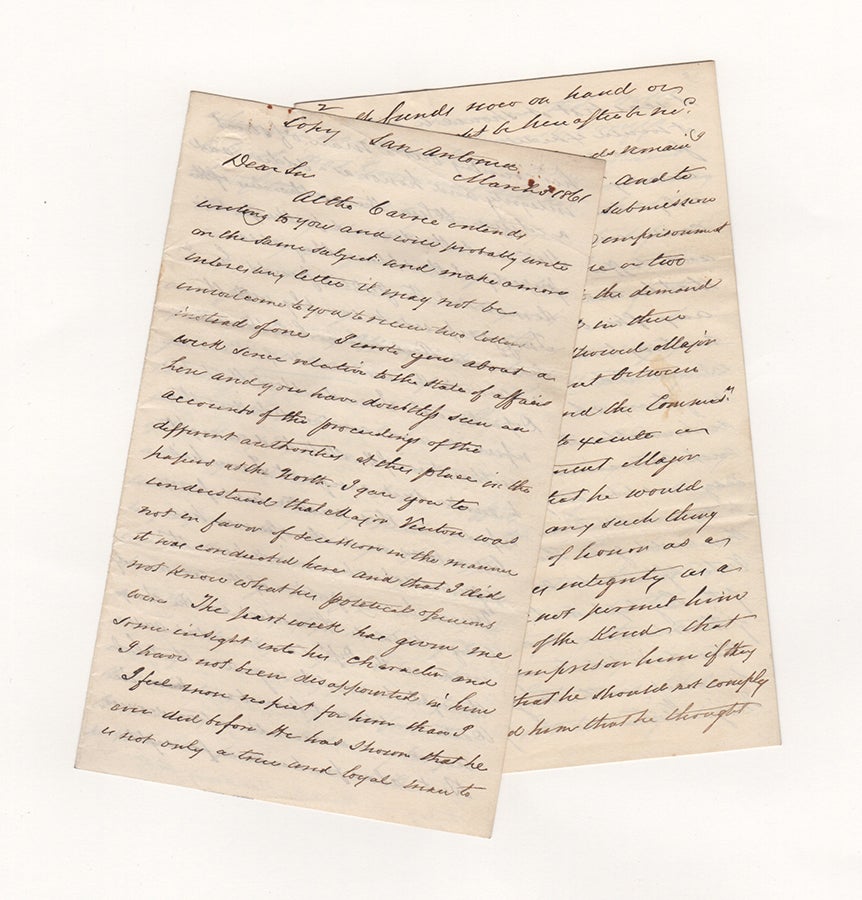 Copy San Antonio
March 3 1861
Dear Sir
Altho Carrie intends
writing to you and will probably write
on the same subject and make a more
interesting letter it may not be
unwelcome to you to receive two letters
instead of one I wrote you about a
week since relative to the state of affairs
here and you have doubtless seen an
accounts of the proceedings of the
different authorities at this place in the
papers at the North. I gave you to
understand that Major Vinton was
not in favor of secession in the manner
it was conducted here and that I did
not know what his political opinions
were The past week has given me
some insight into his character and
I have not been disappointed in him
I feel more respect for him than I
ever did before He has shown that he
is not only a true and loyal man to
2
funds now on hand or
be hereafter be
remain
and to
submission
imprisonment
or two
the demand
in their
Major
between
and the Commrs
to execute
Major
that he would
any such thing
of honor as a
integrity as a
not permit him
of the kind that
imprison him if they
that he should not comply
him that he thought